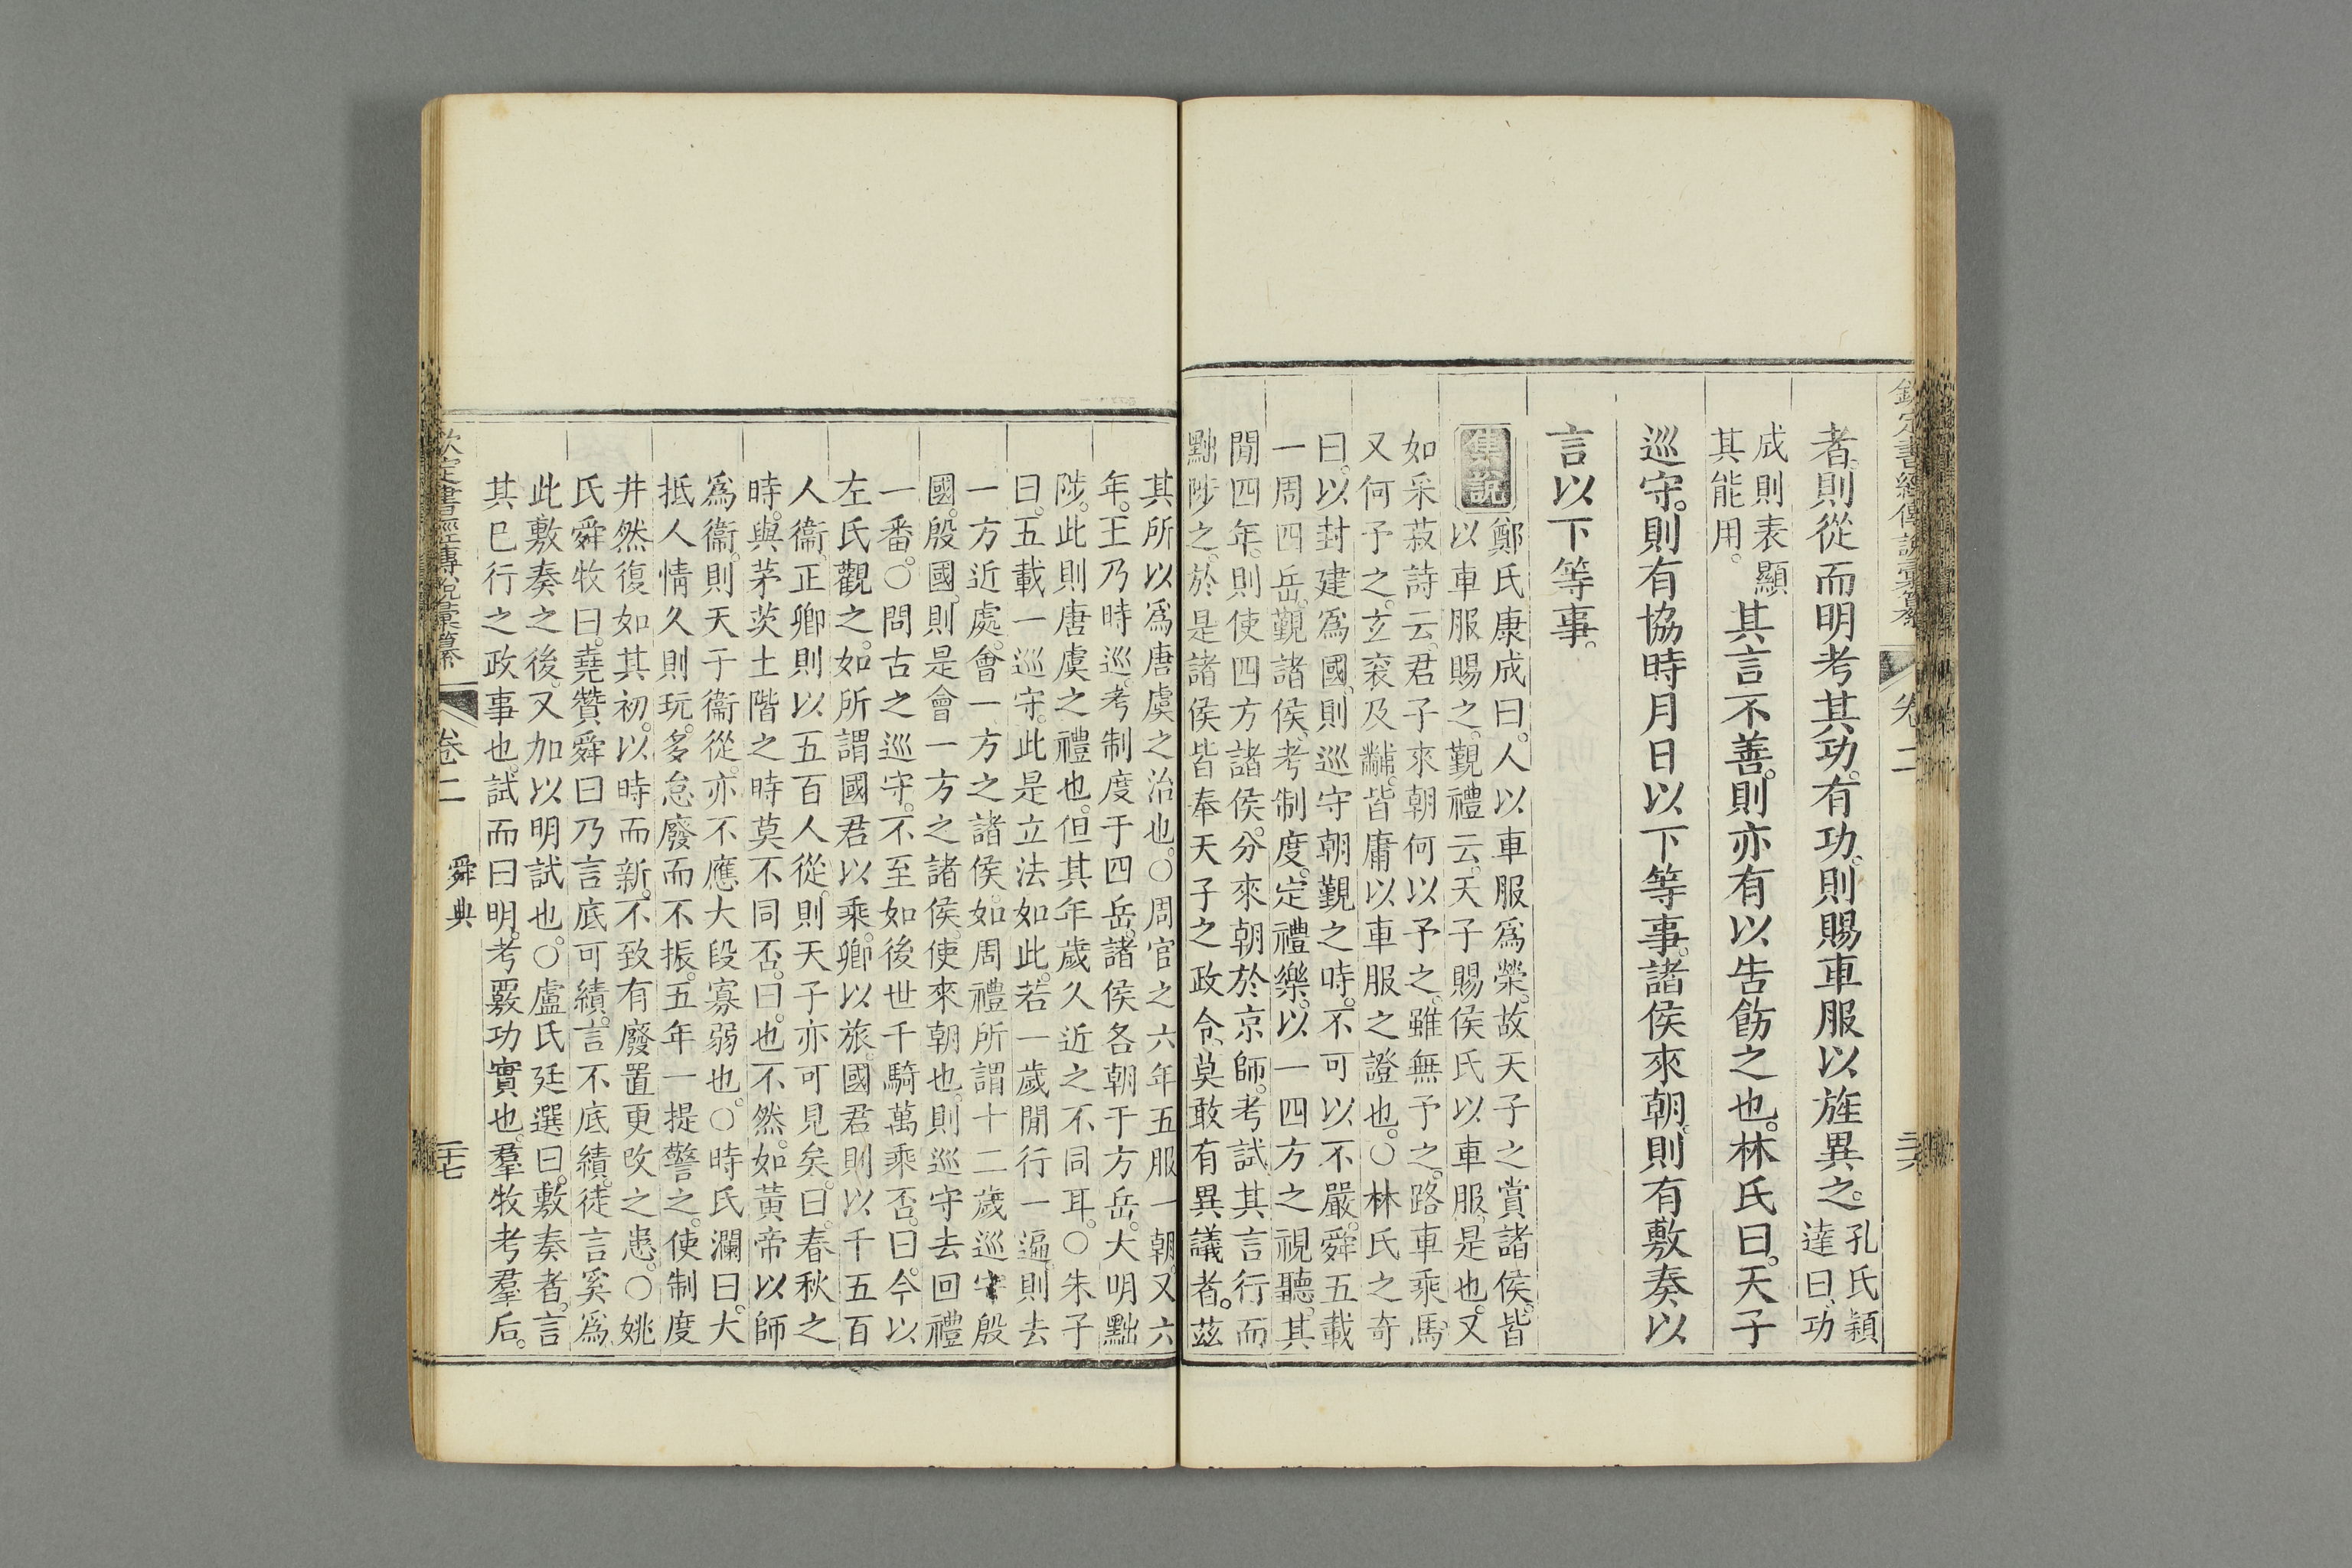 欽定書經傳說彙纂
卷二
者。則從而明考其功。有功。則賜車服以旌異之。孔氏穎
達曰、功
成則表顯
其能用。
其言不善。則亦有以告飭之也。林氏曰。天子
巡守。則有協時月日以下等事。諸侯來朝。則有敷奏以
言以下等事。
集說
鄭氏康成曰。人以車服爲榮。故天子之賞諸侯。皆
以車服賜之。覲禮云。天子賜侯氏以車服。是也。又
如采菽詩云。君子來朝何以予之。雖無予之。路車乘馬。
又何予之。玄袞及黼。皆庸以車服之證也。○林氏之奇
曰。以封建爲國。則巡守朝覲之時。不可以不嚴。舜五載
一周四岳。覲諸侯。考制度。定禮樂。以一四方之視聽。其
閒四年。則使四方諸侯。分來朝於京師。考試其言行而
黜陟之。於是諸侯皆奉天子之政令、莫敢有異議者。茲
其所以爲唐虞之治也。○周官之六年五服一朝。又六
年。王乃時巡。考制度于四岳。諸侯各朝于方岳。大明黜
陟。此則唐虞之禮也。但其年歲久近之不同耳。○朱子
曰。五載一巡守。此是立法如此。若一歲閒行一遍。則去
一方近處。會一方之諸侯。如周禮所謂十二歲巡守殷
國。殷國。則是會一方之諸侯。使來朝也。則巡守去回禮
一番。○問古之巡守。不至如後世千騎萬乘否。曰。今以
左氏觀之。如所謂國君以乘。卿以旅。國君則以千五百
人衞。正卿則以五百人從。則天子亦可見矣。曰。春秋之
時。與茅茨土階之時莫不同否。曰。也不然。如黃帝以師
爲衞。則天子衞從。亦不應大段寡弱也。○時氏瀾曰。大
抵人情久則玩。多怠廢而不振。五年一提警之。使制度
井然復如其初。以時而新。不致有廢置更改之患。○姚
氏舜牧曰。堯贊舜曰乃言底可績。言不底績。徒言奚爲
此敷奏之後。又加以明試也。○盧氏廷選曰。敷奏者。言
其已行之政事也。試而曰明。考覈功實也。羣牧考羣后。
欽定書經傳說彙纂
卷二
舜典
二十七